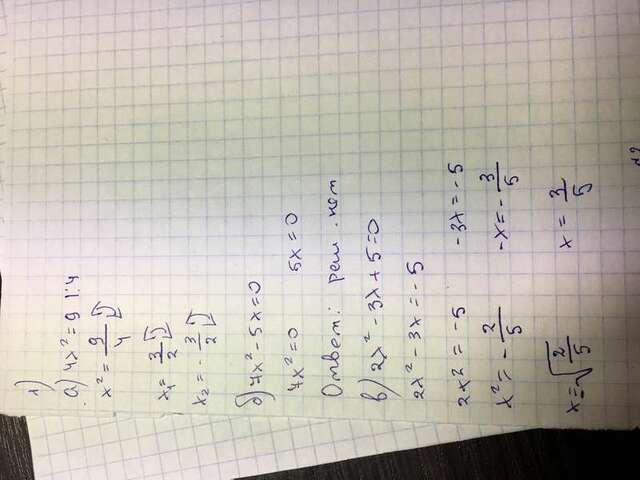 1)
а) 4x² = 9 |:4
x² = 9/4
x₁ = 3/2
x₂ = - 3/2
б) 7x² - 5x = 0
7x² = 0 5x = 0
Ответ: реш. нет
в) 2x² - 3x + 5 = 0
2x² - 3x = - 5
2x² = -5 -3x = -5
x² = - 2/5 -x = - 3/5
x = √2/5 x = 3/5